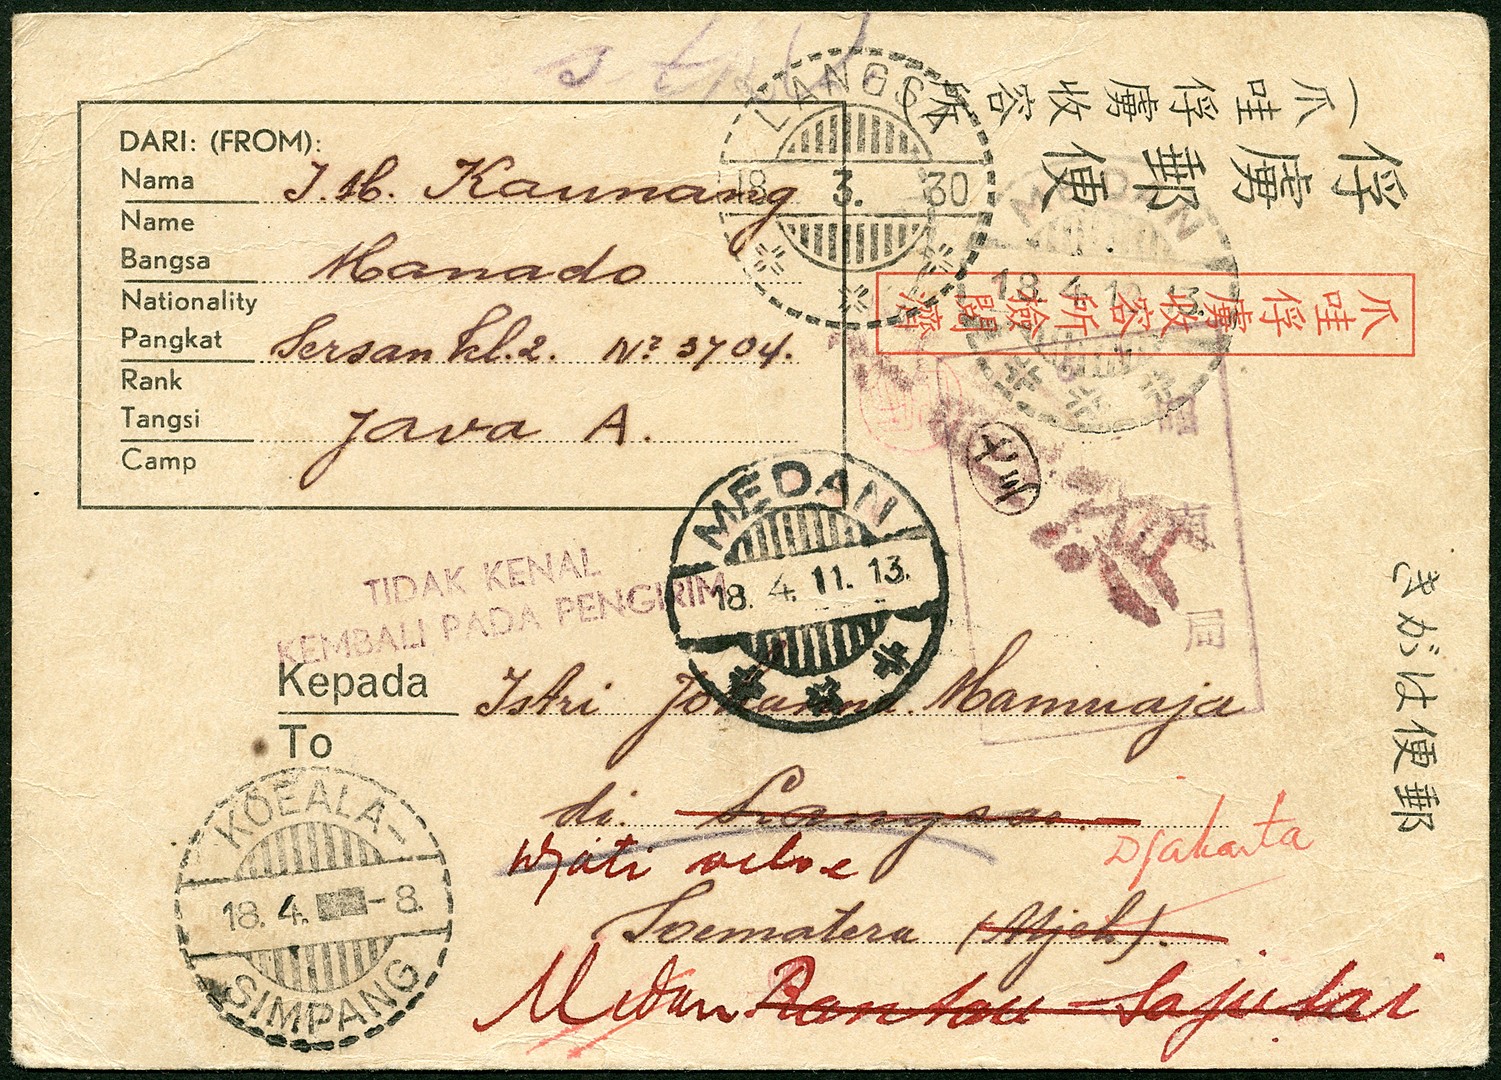 LANGSA
18 3. 30
DARI: (FROM):
Nama J. H. Kaunang
Name
Bangsa Manado
Nationality
Pangkat Sersan kl. 2. No 3704.
Rank
Tangsi Java A.
Camp
爪哇俘虜收容所
俘虜郵便
MEDAN
18 4 13.
爪哇俘虜收容所檢閲濟
MEDAN
18. 4. 11. 13.
TIDAK KENAL
KEMBALI PADA PENGIRIM
局
Kepada Istri Johanna Mamuaja
To
di. Langsa.
Djakarta
Soematera (Atjeh).
Medan Rantau
KOEALA-
18. 4. -8.
SIMPANG
きがは便郵